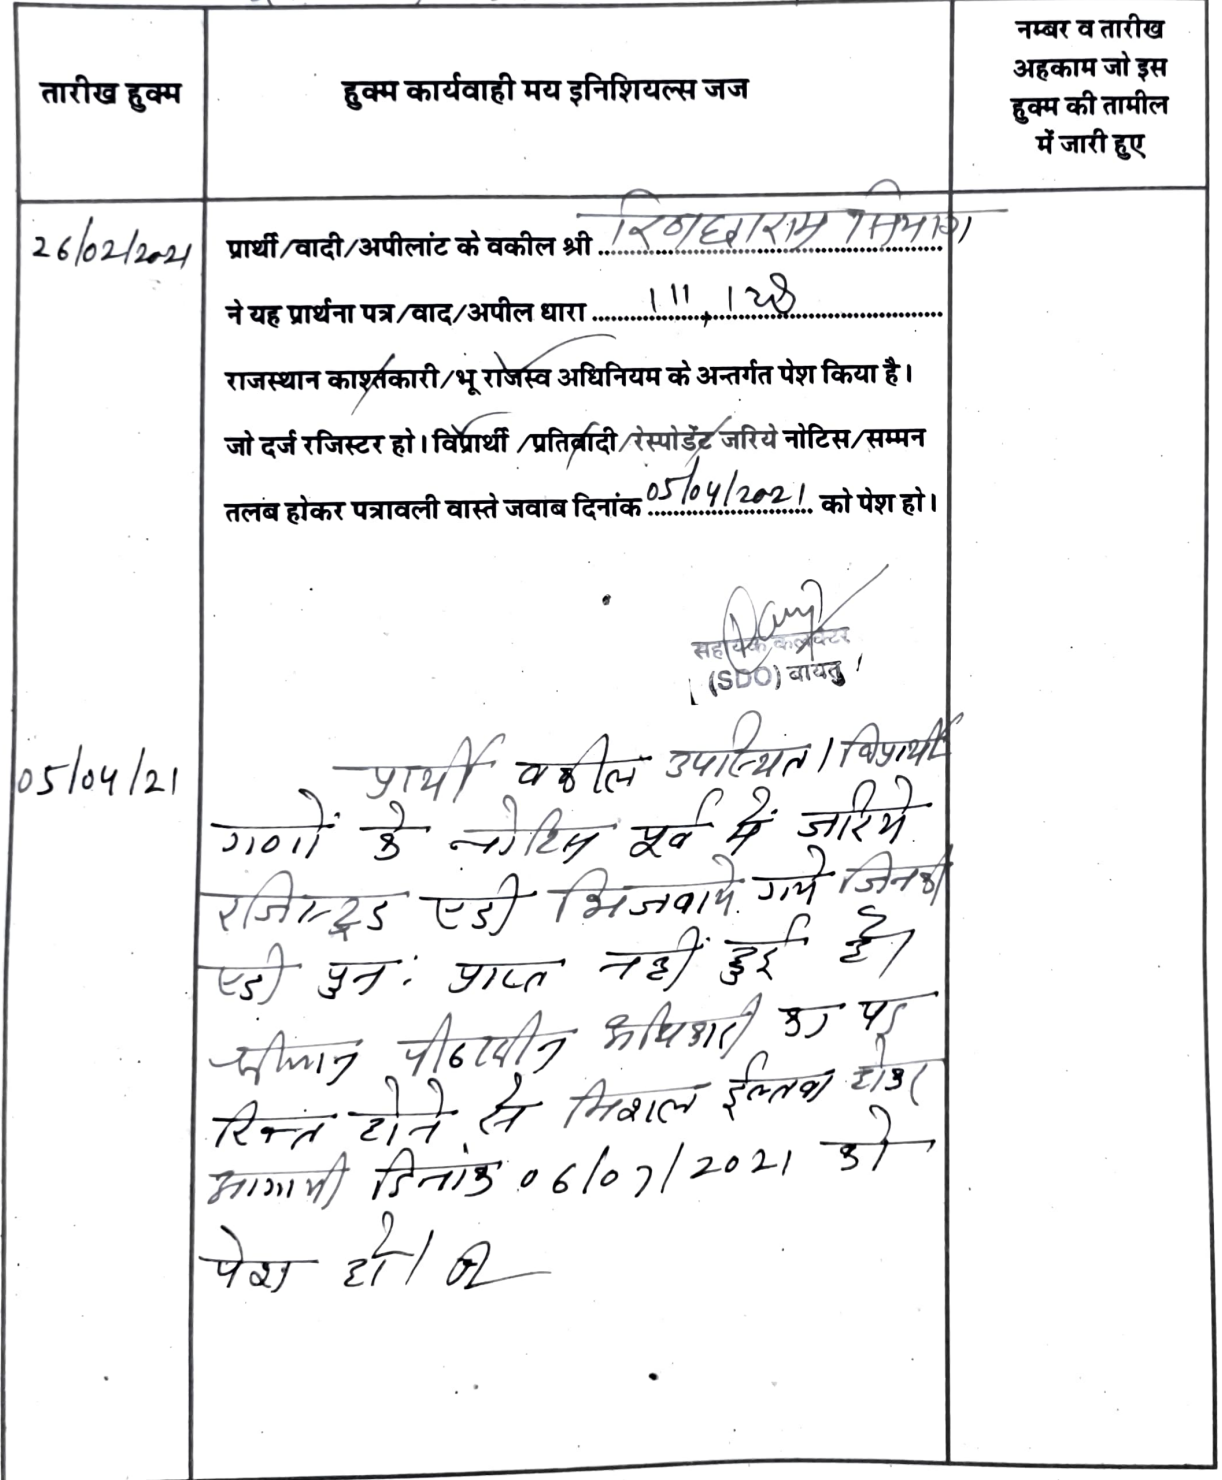 तारीख हुक्म
हुक्म कार्यवाही मय इनिशियल्स जज
नम्बर व तारीख
अहकाम जो इस
हुक्म की तामील
में जारी हुए
26/02/2021
प्रार्थी/वादी/अपीलांट के वकील श्री रिणछाराम सियाग
ने यह प्रार्थना पत्र/वाद/अपील धारा 111, 128
राजस्थान काश्तकारी/भू राजस्व अधिनियम के अन्तर्गत पेश किया है।
जो दर्ज रजिस्टर हो। विप्रार्थी /प्रतिवादी/रेस्पोडेंट जरिये नोटिस/सम्मन
तलब होकर पत्रावली वास्ते जवाब दिनांक 05/04/2021 को पेश हो।
सहायक कलक्टर
(SDO) बायतु
05/04/21
प्रार्थी वकील उपस्थित। विप्रार्थी
गणों के नोटिस पूर्व में जरिये
रजिस्ट्रड एडी भिजवाये गये जिनकी
एडी पुन: प्राप्त नहीं हुई है।
श्रीमान पीठासीन अधिकारी का पद
रिक्त होने से मिशल ईल्तवा होकर
आगामी दिनांक 06/07/2021 को
पेश हो।